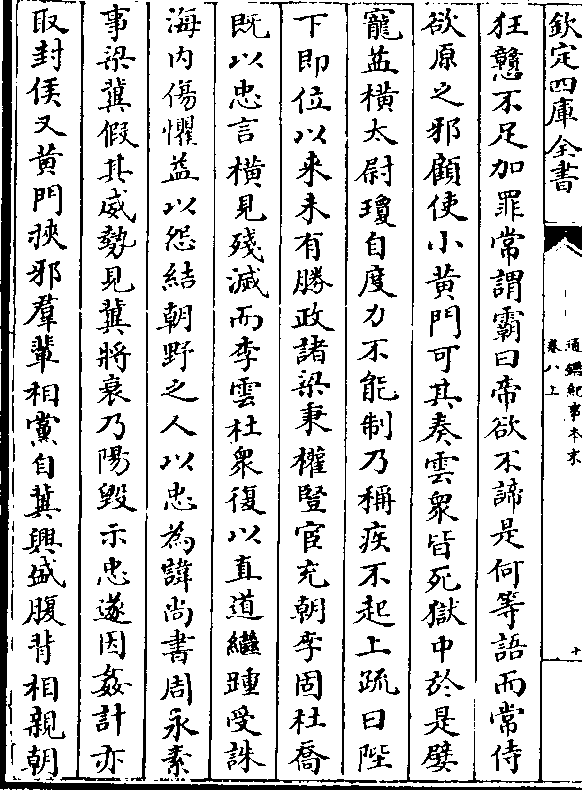 欽定四庫全書
通鑑紀事本末
卷八上
十
狂戇不足加罪常謂霸曰帝欲不諦是何等語而常侍
欲原之邪顧使小黄門可其奏雲衆皆死獄中於是嬖
寵益横太尉瓊自度力不能制乃稱疾不起上疏曰陛
下即位以來未有勝政諸梁秉權豎宦充朝李固杜喬
既以忠言横見殘滅而李雲杜衆復以直道繼踵受誅
海内傷懼益以怨結朝野之人以忠為諱尚書周永素
事梁冀假其威勢見冀將衰乃陽毁示忠遂因姦計亦
取封侯又黄門挾邪羣輩相黨自冀興盛腹背相親朝